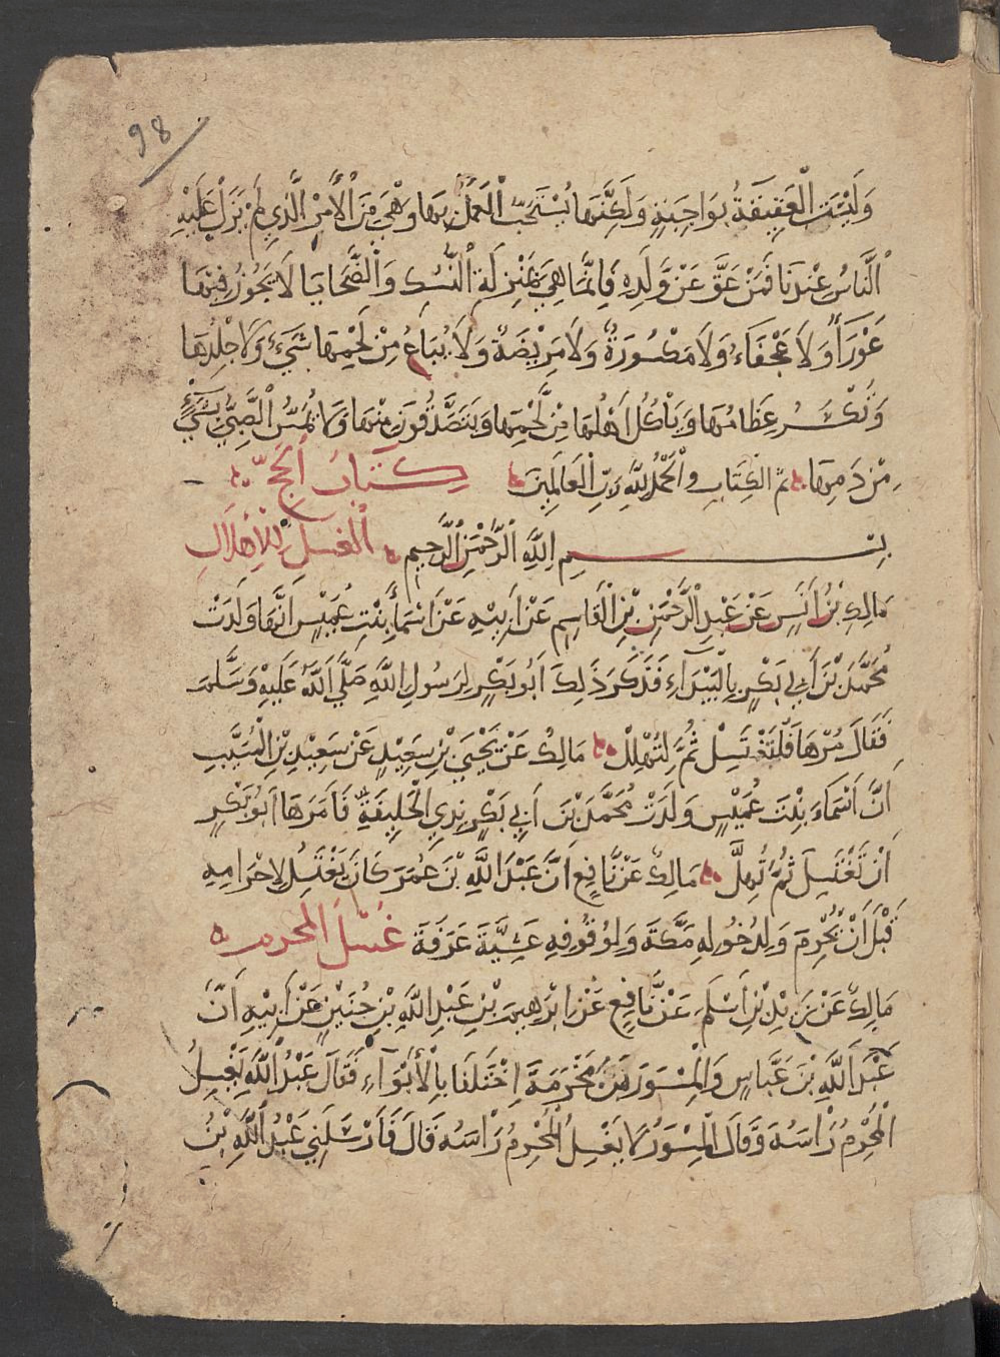 98
وَلَيْسَتِ الْعَقِيقَةُ بِوَاجِبَةٍ وَلَكِنَّهَا يُسْتَحَبُّ الْعَمَلُ بِهَا وَهْيَ مِنَ الْأَمْرِ الَّذِي لَمْ يَزَلْ عَلَيْهِ
النَّاسُ عِنْدَنَا فَمَنْ عَقَّ عَنْ وَلَدِهِ فَإِنَّمَا هِيَ بِمَنْزِلَةِ النُّسُكِ وَالضَّحَايَا لَا يَجُوزُ فِيهَا
عَوْرَاءُ وَلَا عَجْفَاءُ وَلَا مَكْسُورَةٌ وَلَا مَرِيْضَةٌ وَلَا يُبَاعُ مِنْ لَحْمِهَا شَيْءٌ وَلَا جِلْدُهَا
وَتُكْسَرُ عِظَامُهَا وَيَأْكُلُ أَهْلُهَا مِنْ لَحْمِهَا وَيَتَصَدَّقُونَ مِنْهَا وَلَا يُمَسُّ الصَّبِيُّ بِشَيْءٍ
مِنْ دَمِهَا ۞ تم الكِتَابِ والْحَمْدُ لِلَّهِ رَبِّ الْعَالَمِينَ كتَابُ الحَجّ
بِسْمِ اللَّهِ الرَّحْمَنِ الرَّحِيمِ ۞ الْغسل لِلْإِهْلَالِ
مَالِكِ بْنُ أَنَسٍ عَنْ عَبْدِ الرَّحْمَنِ بْنِ الْقَاسِمِ عَنْ أَبِيْهِ عَنْ أَسْمَاءَ بِنْتِ عُمَيْسٍ أَنَّهَا وَلَدَتْ
مُحَمَّدَ بْنَ أَبِي بَكْرٍ بِالْبَيْدَاءِ فَذَكَرَ ذَلِكَ أَبُو بَكْرٍ لِرَسُولِ اللَّهِ صَلَّى اللَّهُ عَلَيْهِ وَسَلَّمَ
فَقَالَ مُرْهَا فَلْتَغْتَسِلْ ثُمَّ لِتُهْلِلْ ۞ مَالِكٌ عَنْ يَحْيَى بْنِ سَعِيْدٍ عَنْ سَعِيْدِ بْنِ الْمُسَيَّبِ
أَنَّ أَسْمَاءَ بِنْتَ عُمَيْسٍ وَلَدَتْ مُحَمَّدَ بْنَ أَبِي بَكْرٍ بِذِي الْحُلِيفَةِ فَأَمَرَهَا أَبُو بَكْرٍ
أَنْ تَغْتَسِلَ ثُمَّ تُهِلَّ ۞ مَالِكٌ عَنْ نَّافِعٍ أَنَّ عَبْدَ اللَّهِ بْنَ عُمَرَ كَانَ يَغْتَسِلُ لِإِحْرَامِهِ
قَبْلَ أَنْ يُحْرِمَ وَلِدُخُولِهِ مَكَّةَ وَلِوُقُوفِهِ عَشِيَّةَ عَرَفَةَ غُسْلُ المحرم ۞
مَالِكٌ عَنْ زَيْدِ بْنِ أَسْلَمَ عَنْ نَّافِعٍ عَنْ إِبْرَهِيمَ بْنِ عَبْدِ اللَّهِ بْنِ حُنَيْنٍ عَنْ أَبِيْهِ أَنَّ
عَبْدَ اللَّهِ بْنَ عَبَّاسٍ وَالْمِسْوَرَ بْنَ مَخْرَمَةَ اخْتَلَفَا بِالْأَبْوَاءِ فَقَالَ عَبْدُ اللَّهِ يَغْسِلُ
الْمُحْرِمُ رَأْسَهُ وَقَالَ الْمِسْوَرُ لَا يَغْسِلُ الْمُحْرِمُ رَأْسَهُ قَالَ فَأَرْسَلَنِي عَبْدُ اللَّهِ بْنُ